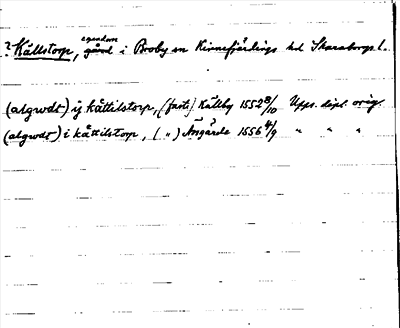 ? Källstorp, egendom gård i Broby sn Kinnefjärdings hd Skaraborgs l.
(atgwdt) ij kåttilstorp, (fasti) Källby 1552 8/12 Upps. dipl. orig.
(atgwdt) i kåttilstorp, ( " ) Åsgärde 1556 4/9 " " "